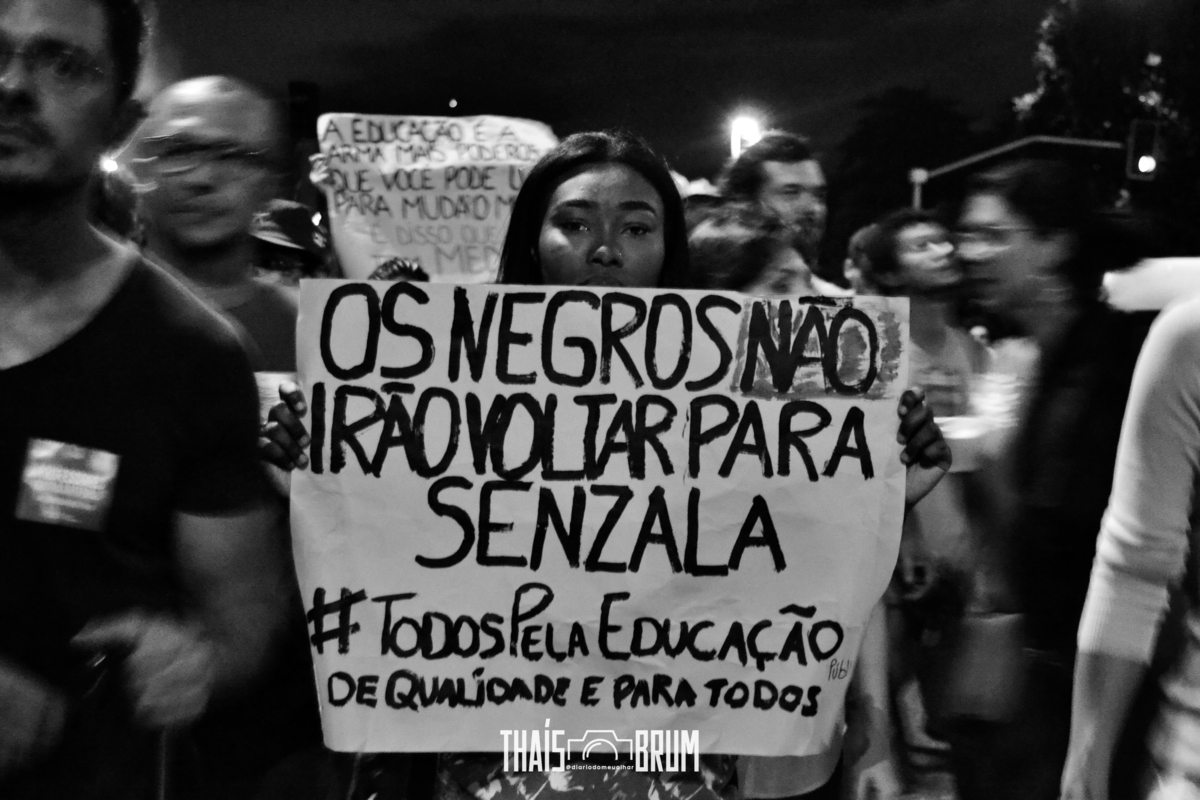 A EDUCAÇÃO É A
ARMA MAIS PODEROS
QUE VOCÊ PODE U
PARA MUDA O M
É DISSO QUE
MED
OS NEGROS NÃO
IRÃO VOLTAR PARA
SENZALA
#TODOS PELA EDUCAÇÃO
PÚB
DE QUALIDADE E PARA TODOS
THAÍS BRUM
@diariodomeuolhar